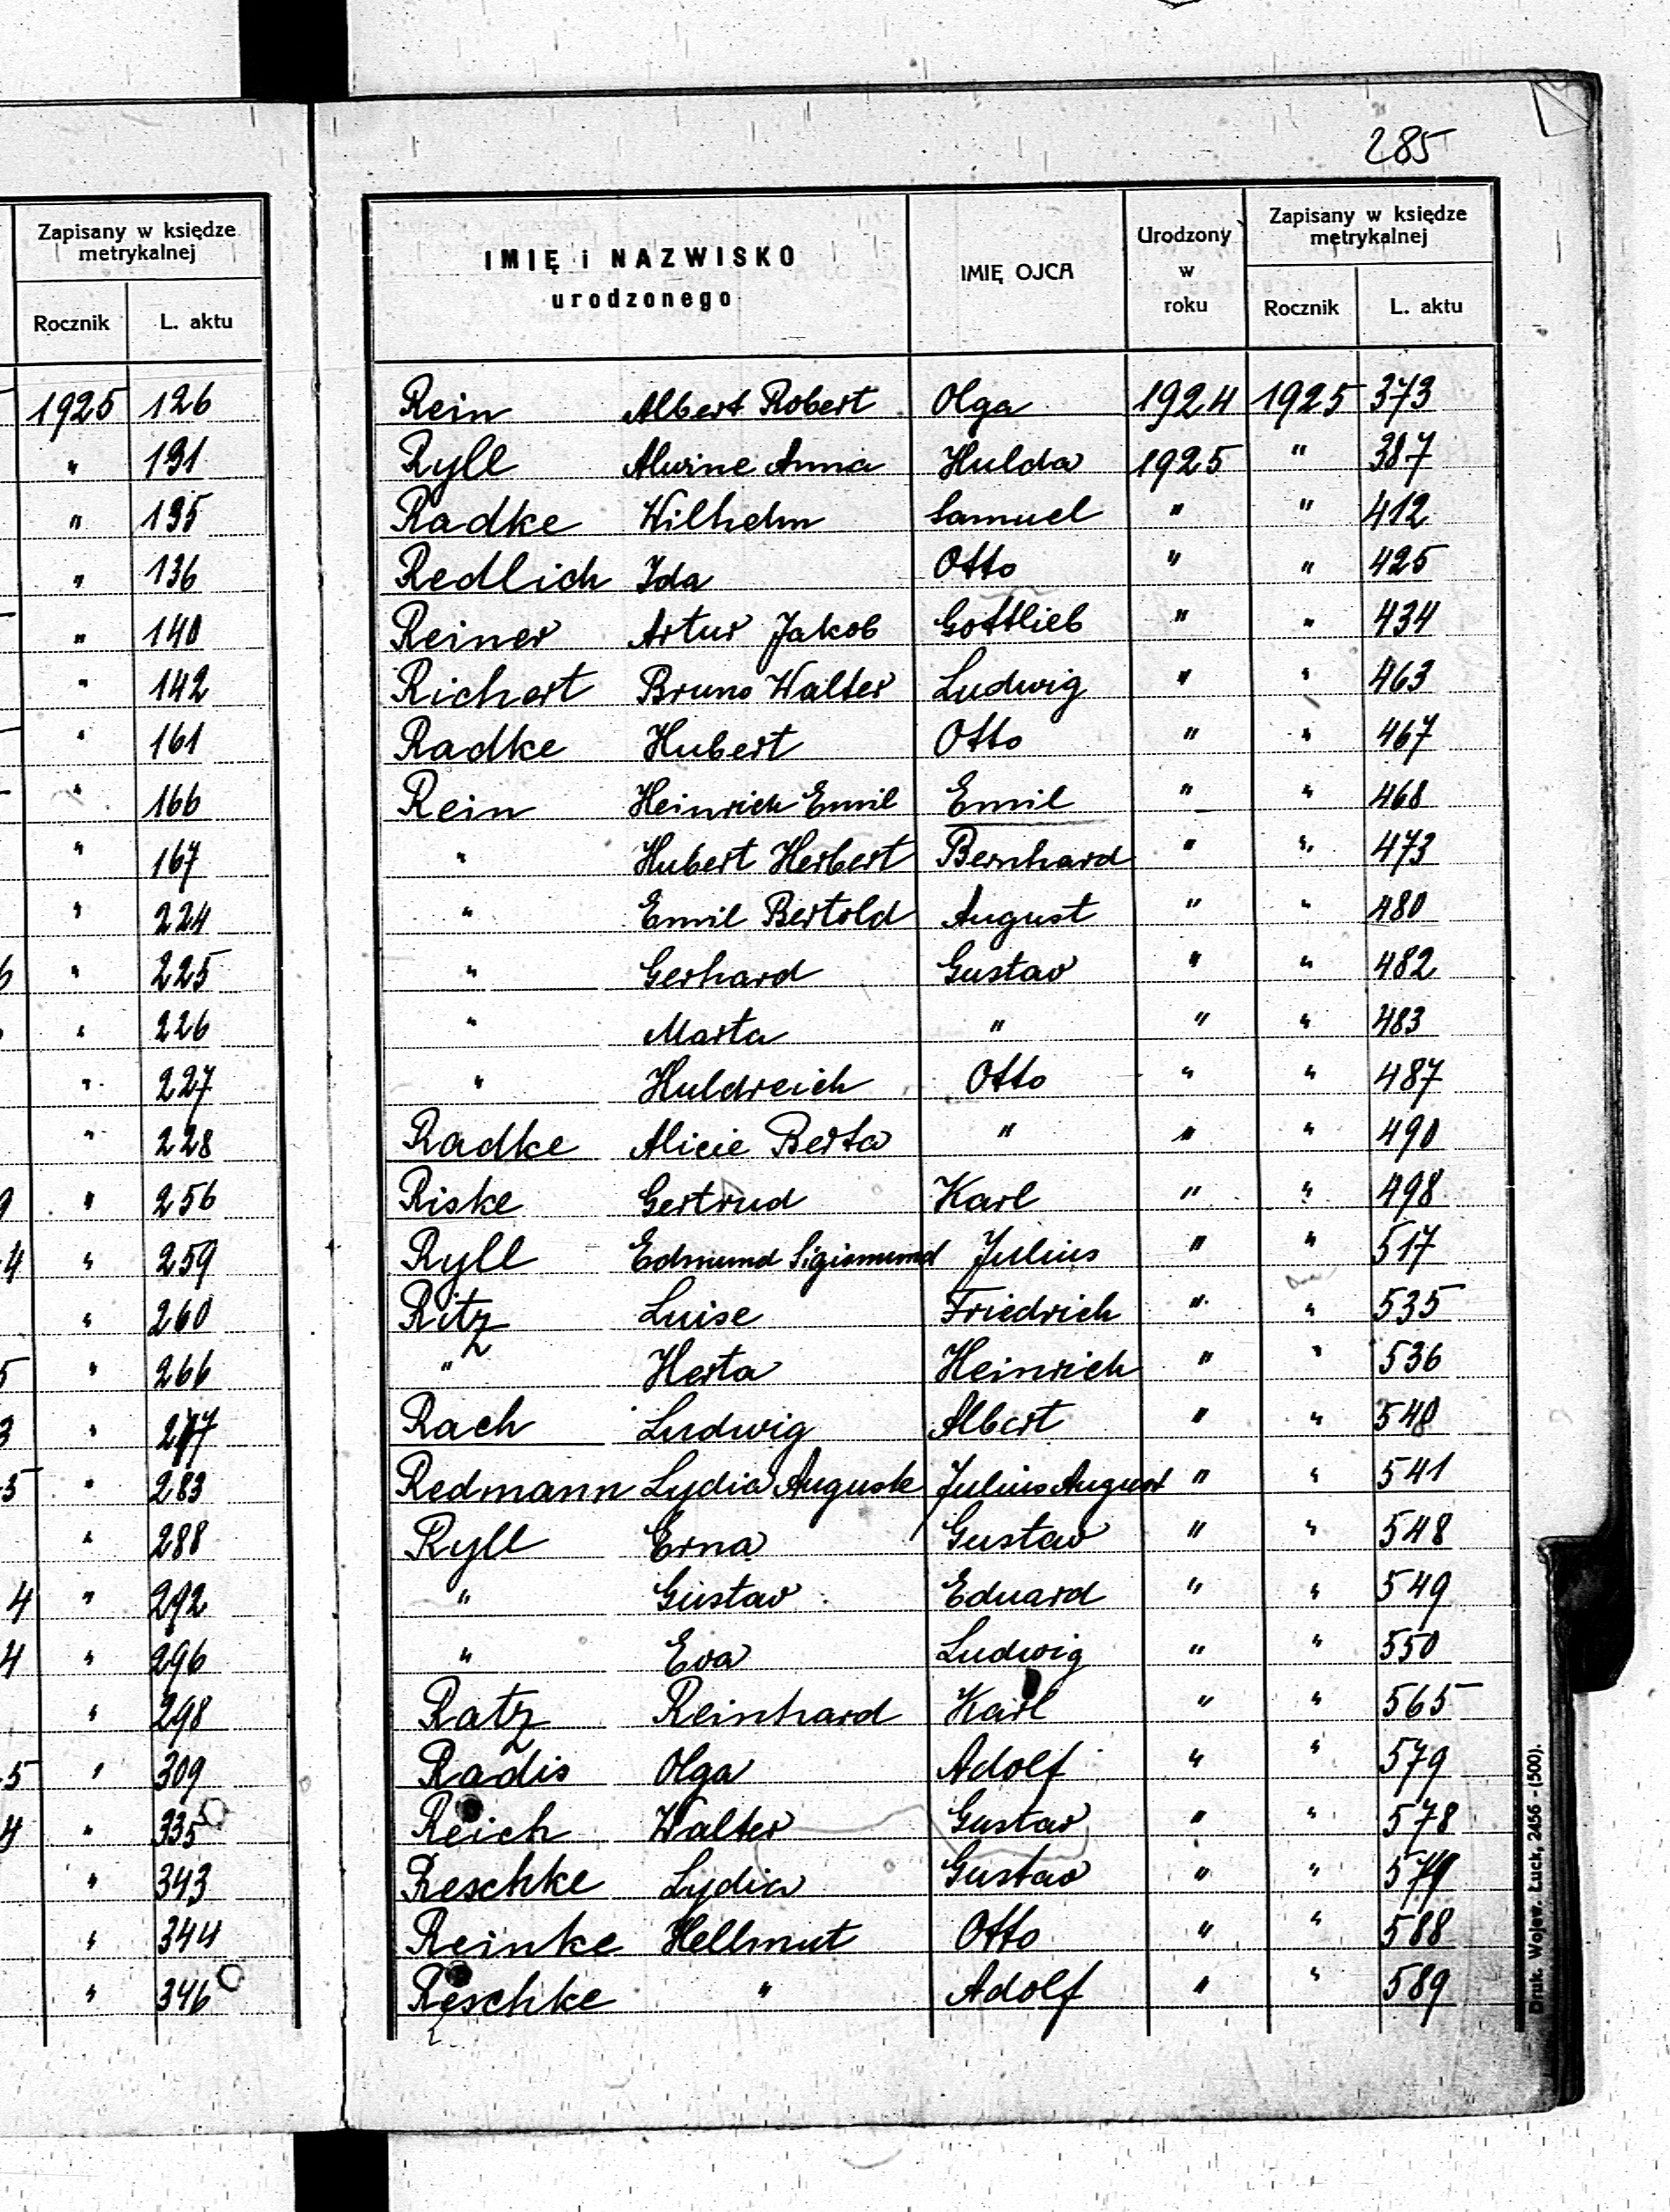 285
Zapisany w księdze
metrykalnej
Rocznik L. aktu
1925 126
" 131
" 135
" 136
" 140
" 142
" 161
" 166
" 167
" 224
" 225
" 226
" 227
" 228
" 256
" 259
" 260
" 266
" 277
" 283
" 288
" 292
" 296
" 298
" 309
" 335
" 343
" 344
" 346
IMIĘ i NAZWISKO
urodzonego
IMIĘ OJCA
Urodzony
w
roku
Zapisany w księdze
metrykalnej
Rocznik L. aktu
Rein Albert Robert Olga 1924 1925 373
Ryll Alwine Anna Hulda 1925 " 387
Radke Wilhelm Samuel " " 412
Redlich Ida Otto " " 425
Reiner Artur Jakob Gottlieb " " 434
Richert Bruno Walter Ludwig " " 463
Radke Hubert Otto " " 467
Rein Heinrich Emil Emil " " 468
" Hubert Herbert Bernhard " " 473
" Emil Bertold August " " 480
" Gerhard Gustav " " 482
" Marta " " " 483
" Huldreich Otto " " 487
Radke Alicie Berta " " " 490
Riske Gertrud Karl " " 498
Ryll Edmund Sigismund Julius " " 517
Ritz Luise Friedrich " " 535
" Herta Heinrich " " 536
Rach Ludwig Albert " " 540
Redmann Lydia Auguste Julius August " " 541
Ryll Erna Gustav " " 548
" Gustav Eduard " " 549
" Eva Ludwig " " 550
Ratz Reinhard Karl " " 565
Radis Olga Adolf " " 579
Reich Walter Gustav " " 578
Reschke Lydia Gustav " " 579
Reinke Hellmut Otto " " 588
Reschke " Adolf " " 589
Druk. Wojew. Łuck, 2456 - (500).